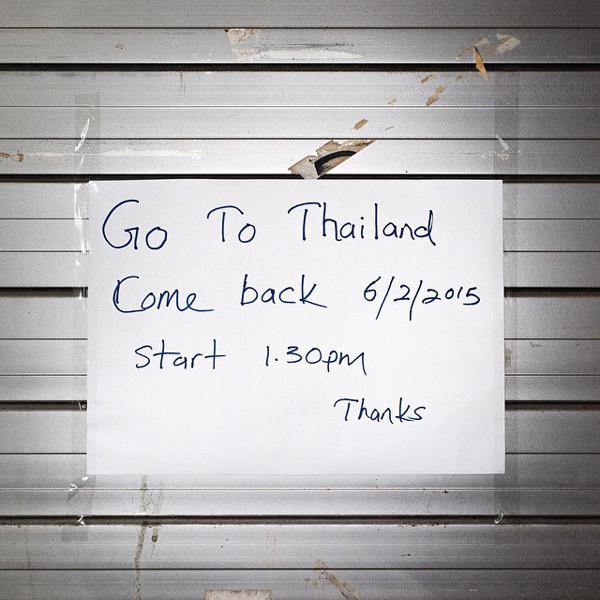 Go To Thailand
Come back 6/2/2015
Start 1.30pm
Thanks